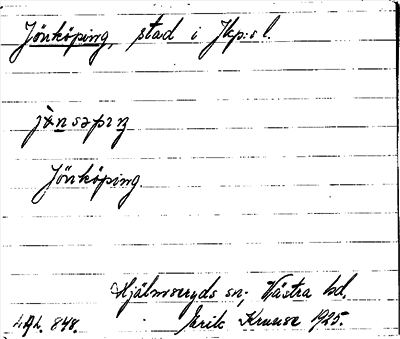 Jönköping, stad i Jkp:s l.
Jönköping.
Hjälmseryds sn; Västra hd.
848. Erik Kruuse 1925.